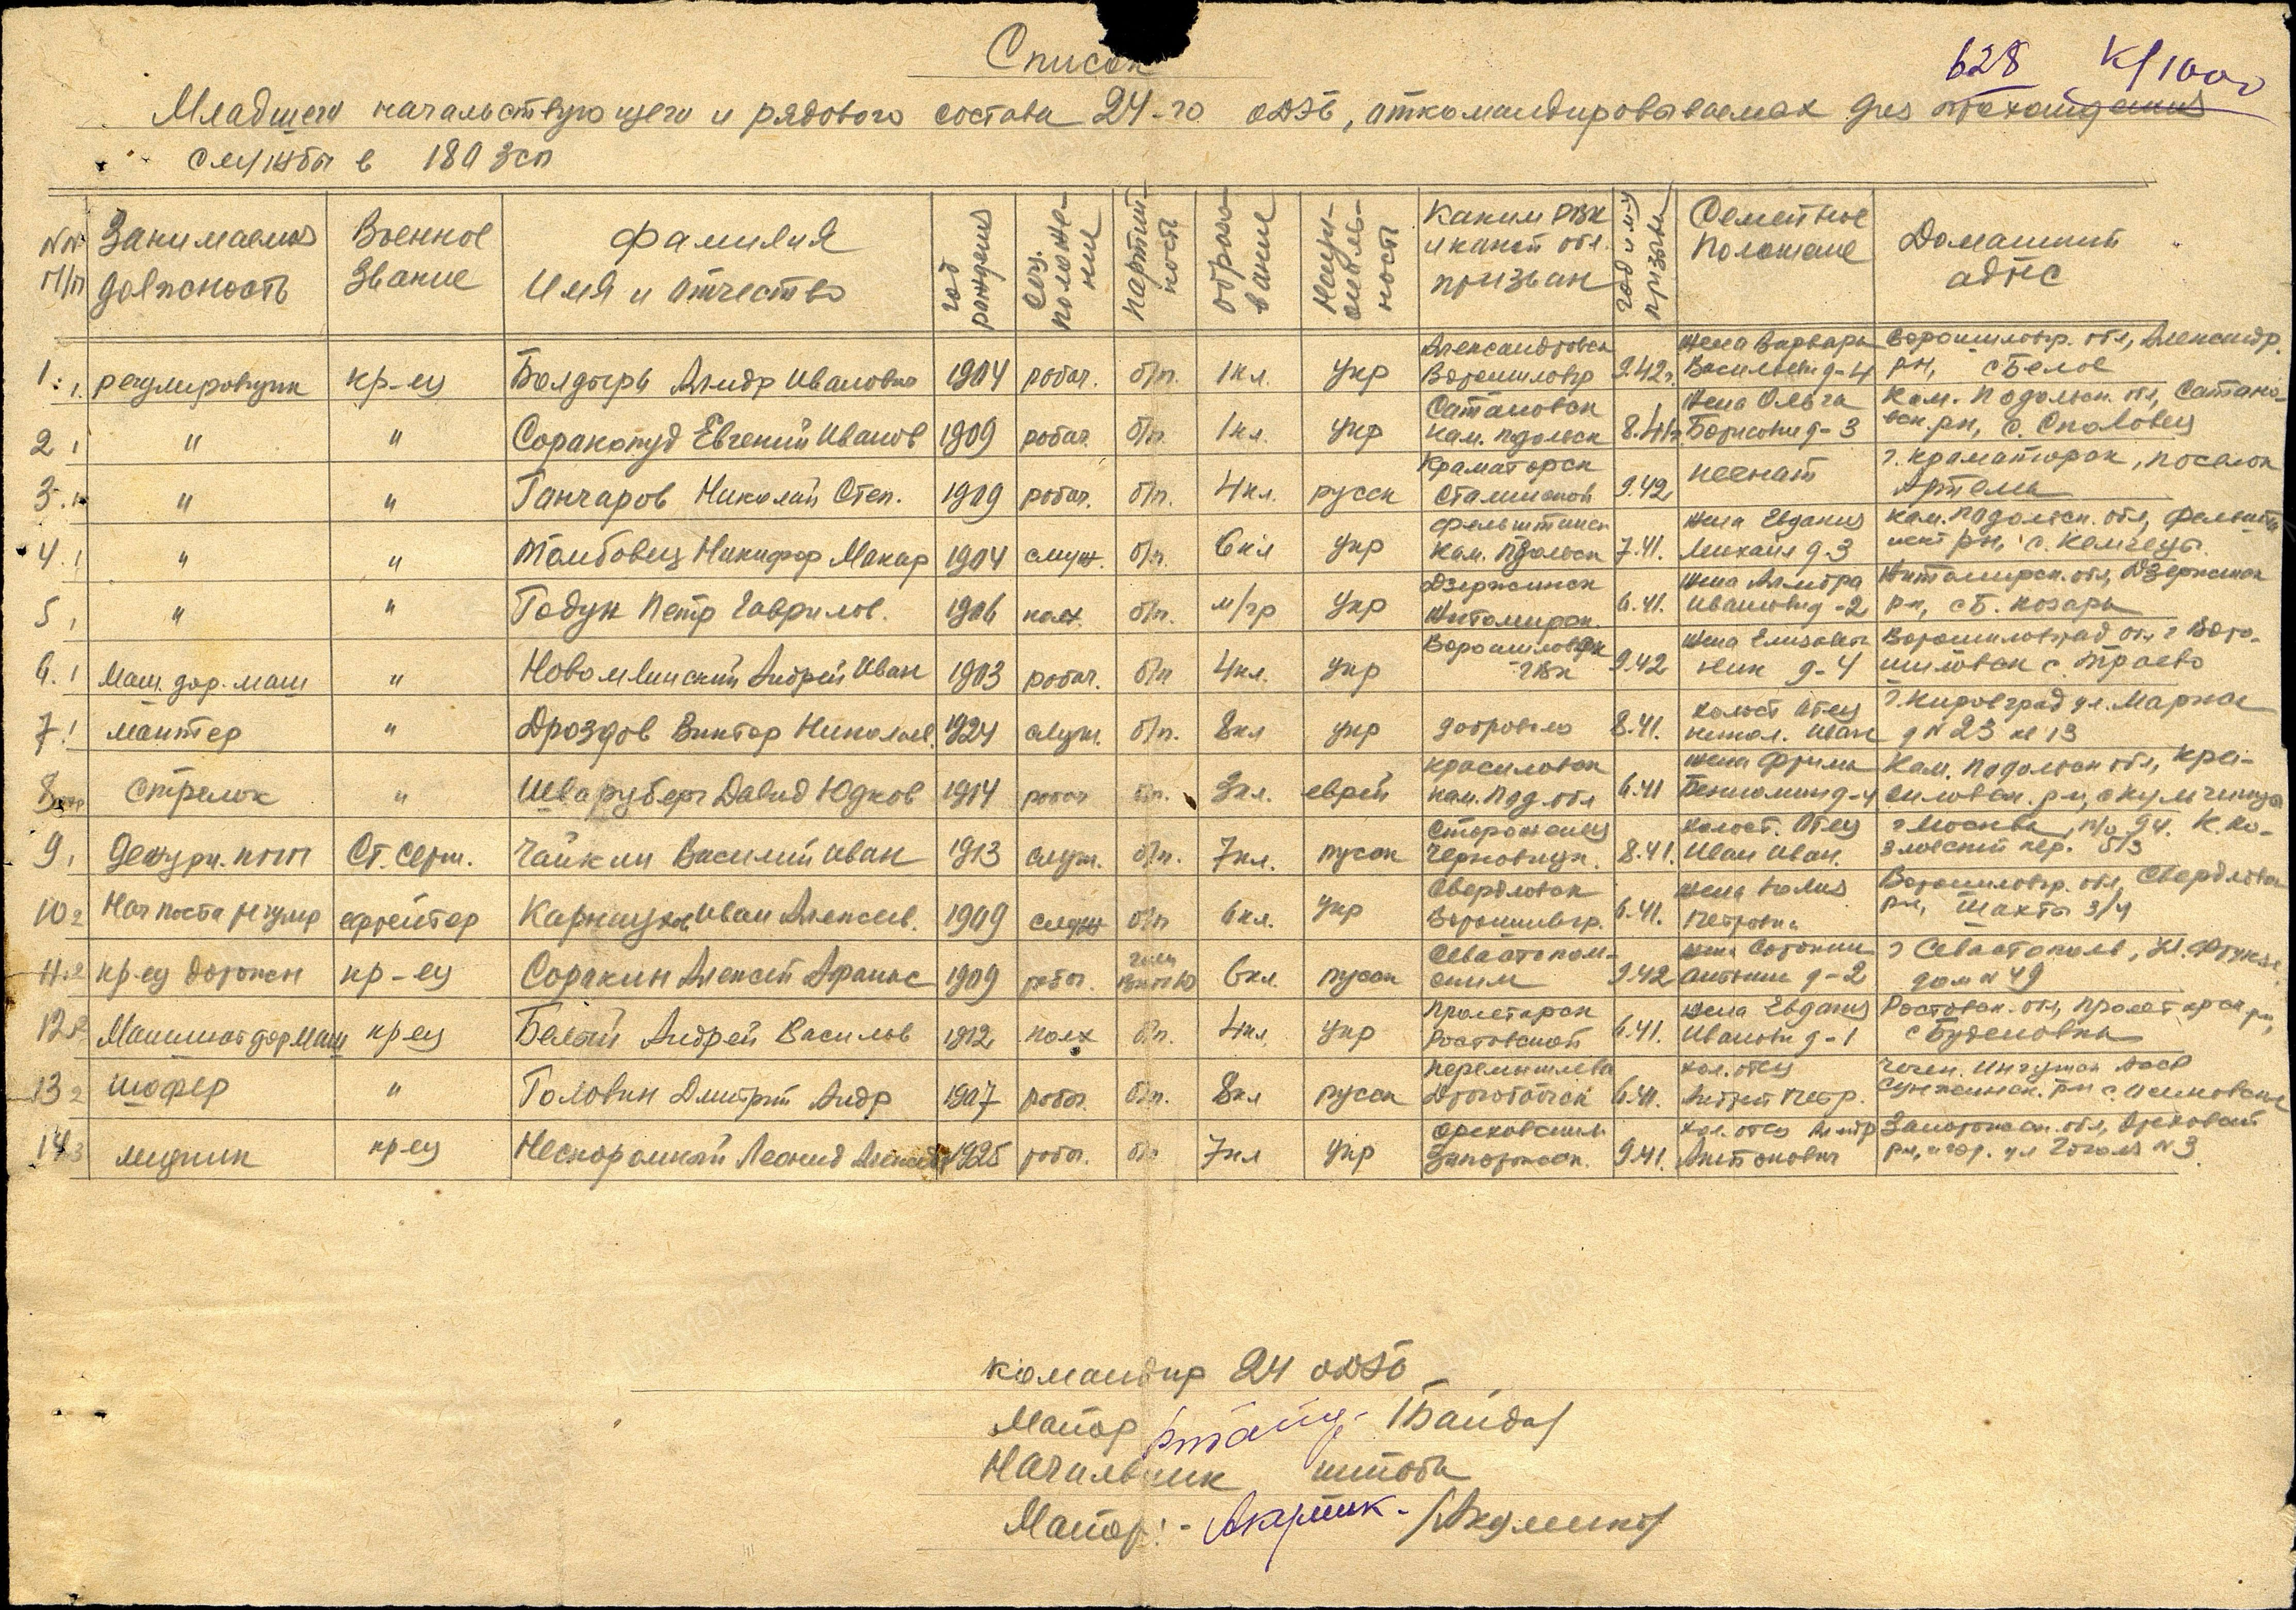 Список
628 К/1000
Младшего начальствующего и рядового состава 24-го одэб, откомандировываемых для прохождения
службы в 180 зсп
№№ п/п | Занимаемая должность | Военное звание | Фамилия Имя и отчество | год рождения | Соц. положение | партийность | образование | национальность | Каким РВК и какой обл. призван | год и м-ц призыва | Семейное положение | Домашний адрес
1. регулировщик кр-ец Болдырь Алндр Иванович 1904 рабоч. б/п. 1 кл. укр Александровск Ворошиловгр 9.42 г. жена Варвара Васильевн д-4 Ворошиловгр. обл, Александр. рн, с Белое
2 " " Соракопуд Евгений Иванов 1909 рабоч. б/п. 1 кл. укр Сатановск Кам. Подольск 8.41 жена Ольга Борисовн д-3 Кам. Подольск. обл, Сатановск. рн, с.
3. " " Ганчаров Николай Степ. 1909 рабоч. б/п. 4 кл. русск Краматорск Сталинской 9.42 г. Краматорск, поселок Артема
4. " " Томбовец Никифор Макар 1904 служ. б/п. 6 кл укр Фельштинск Кам. Подольск 7.41. жена Евдакия Михайл д.3 Кам. Подольск. обл,
5 " " Годун Петр Гаврилов. 1906 колх. б/п. м/гр укр Дзержинск Житомирск. 6.41. жена Ивановн д-2 Житомирск. обл, Дзержинск рн, с Б. Козары
6. Маш. дор. маш " Новомлинский Андрей Иван 1903 рабоч. б/п 4 кл. укр Ворошиловск ГВК 9.42 жена Елизавет Ник д-4 Ворошиловград обл г Ворошиловск с.
7. монтер " Дроздов Виктор Николаев. 1924 служ. б/п. 8 кл укр 8.41. холост отец Никол. Иван г. Кировград ул. Маркса д № 23 кв 13
8 стрелок " Шварцберг Давид Юдков 1914 рабоч б/п. 3 кл. еврей Красиловск Кам. Под обл 6.41 жена Фрима д-4 Кам. Подольск обл, Красиловск. рн, с Кульчинцы
9. Дежурн. кпп Ст. серж. Чайкин Василий Иван 1913 служ. б/п. 7 кл. русск Сторожинец Черновицк. 8.41. холост. Отец Иван Иван. г Москва, п/о 94. пер. 5/3
10 Нач поста регулир ефрейтор Карнаухов Иван Алексеев. 1909 служ б/п 6 кл. укр Свердловск Ворошиловгр. 6.41. жена Юлия Петровна Ворошиловгр. обл, Свердловск рн, Шахты 3/4
11. кр-ец дорожн кр-ец Соракин Алексей Афанас 1909 рабоч. член ВКП(б) 6 кл. русск Севастопольским 9.42 жена Соракина д-2 г Севастополь, ул. Фрунзе дом № 49
12 Машинист дор маш кр ец Белый Андрей Василов 1912 колх б/п. 4 кл. укр Пролетарск Ростовской 6.41. жена Евдакия Ивановн д-1 Ростовск. обл, Пролетарск рн, с Буденовка
13 шофер " Головин Дмитрий Андр 1907 рабоч. б/п. 8 кл русск Перемышлева Дрогобычск 6.41. хол. отец Андрей Петр. Чечен. Ингушск АССР Сунженск. рн с Асиновская
14 медник кр ец Нескоромный Леонид Алексан 1925 рабоч. б/п 7 кл укр Ореховским Запорожск. 9.41. хол. отец Алндр Антонович Запорожск. обл, Ореховский рн, гор. ул Гоголя № 3
Командир 24 одэб
Майор /Байда/
Начальник штаба
Майор: -